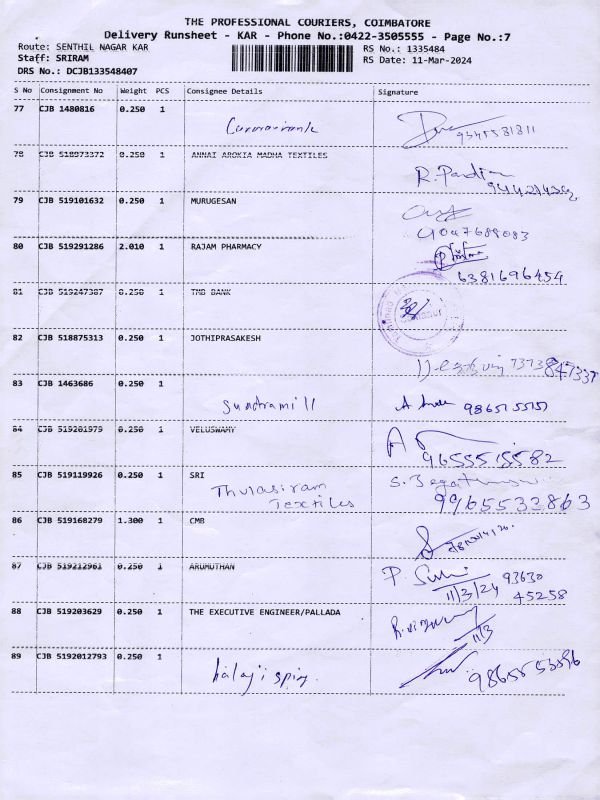 THE PROFESSIONAL COURIERS, COIMBATORE
Delivery Runsheet - KAR - Phone No.:0422-3505555 - Page No.:7
Route: SENTHIL NAGAR KAR RS No.: 1335484
Staff: SRIRAM RS Date: 11-Mar-2024
DRS No.: DCJB133548407
S No Consignment No Weight PCS Consignee Details Signature
77 CJB 1480816 0.250 1
9345531311
78 CJB 518973372 0.250 1 ANNAI AROKIA MADHA TEXTILES
R. Pandi
79 CJB 519101632 0.250 1 MURUGESAN
9047688083
80 CJB 519291286 2.010 1 RAJAM PHARMACY
6381696454
81 CJB 519247387 0.250 1 TMB BANK
82 CJB 518875313 0.250 1 JOTHIPRASAKESH
83 CJB 1463686 0.250 1
Sundramill
84 CJB 519201979 0.250 1 VELUSWAMY
9655515582
85 CJB 519119926 0.250 1 SRI
Thulasiram
Textiles
9965533863
86 CJB 519168279 1.300 1 CMB
87 CJB 519212961 0.250 1 ARUMUTHAN
11/3/24 93630
45258
88 CJB 519203629 0.250 1 THE EXECUTIVE ENGINEER/PALLADA
11/3
89 CJB 5192012793 0.250 1